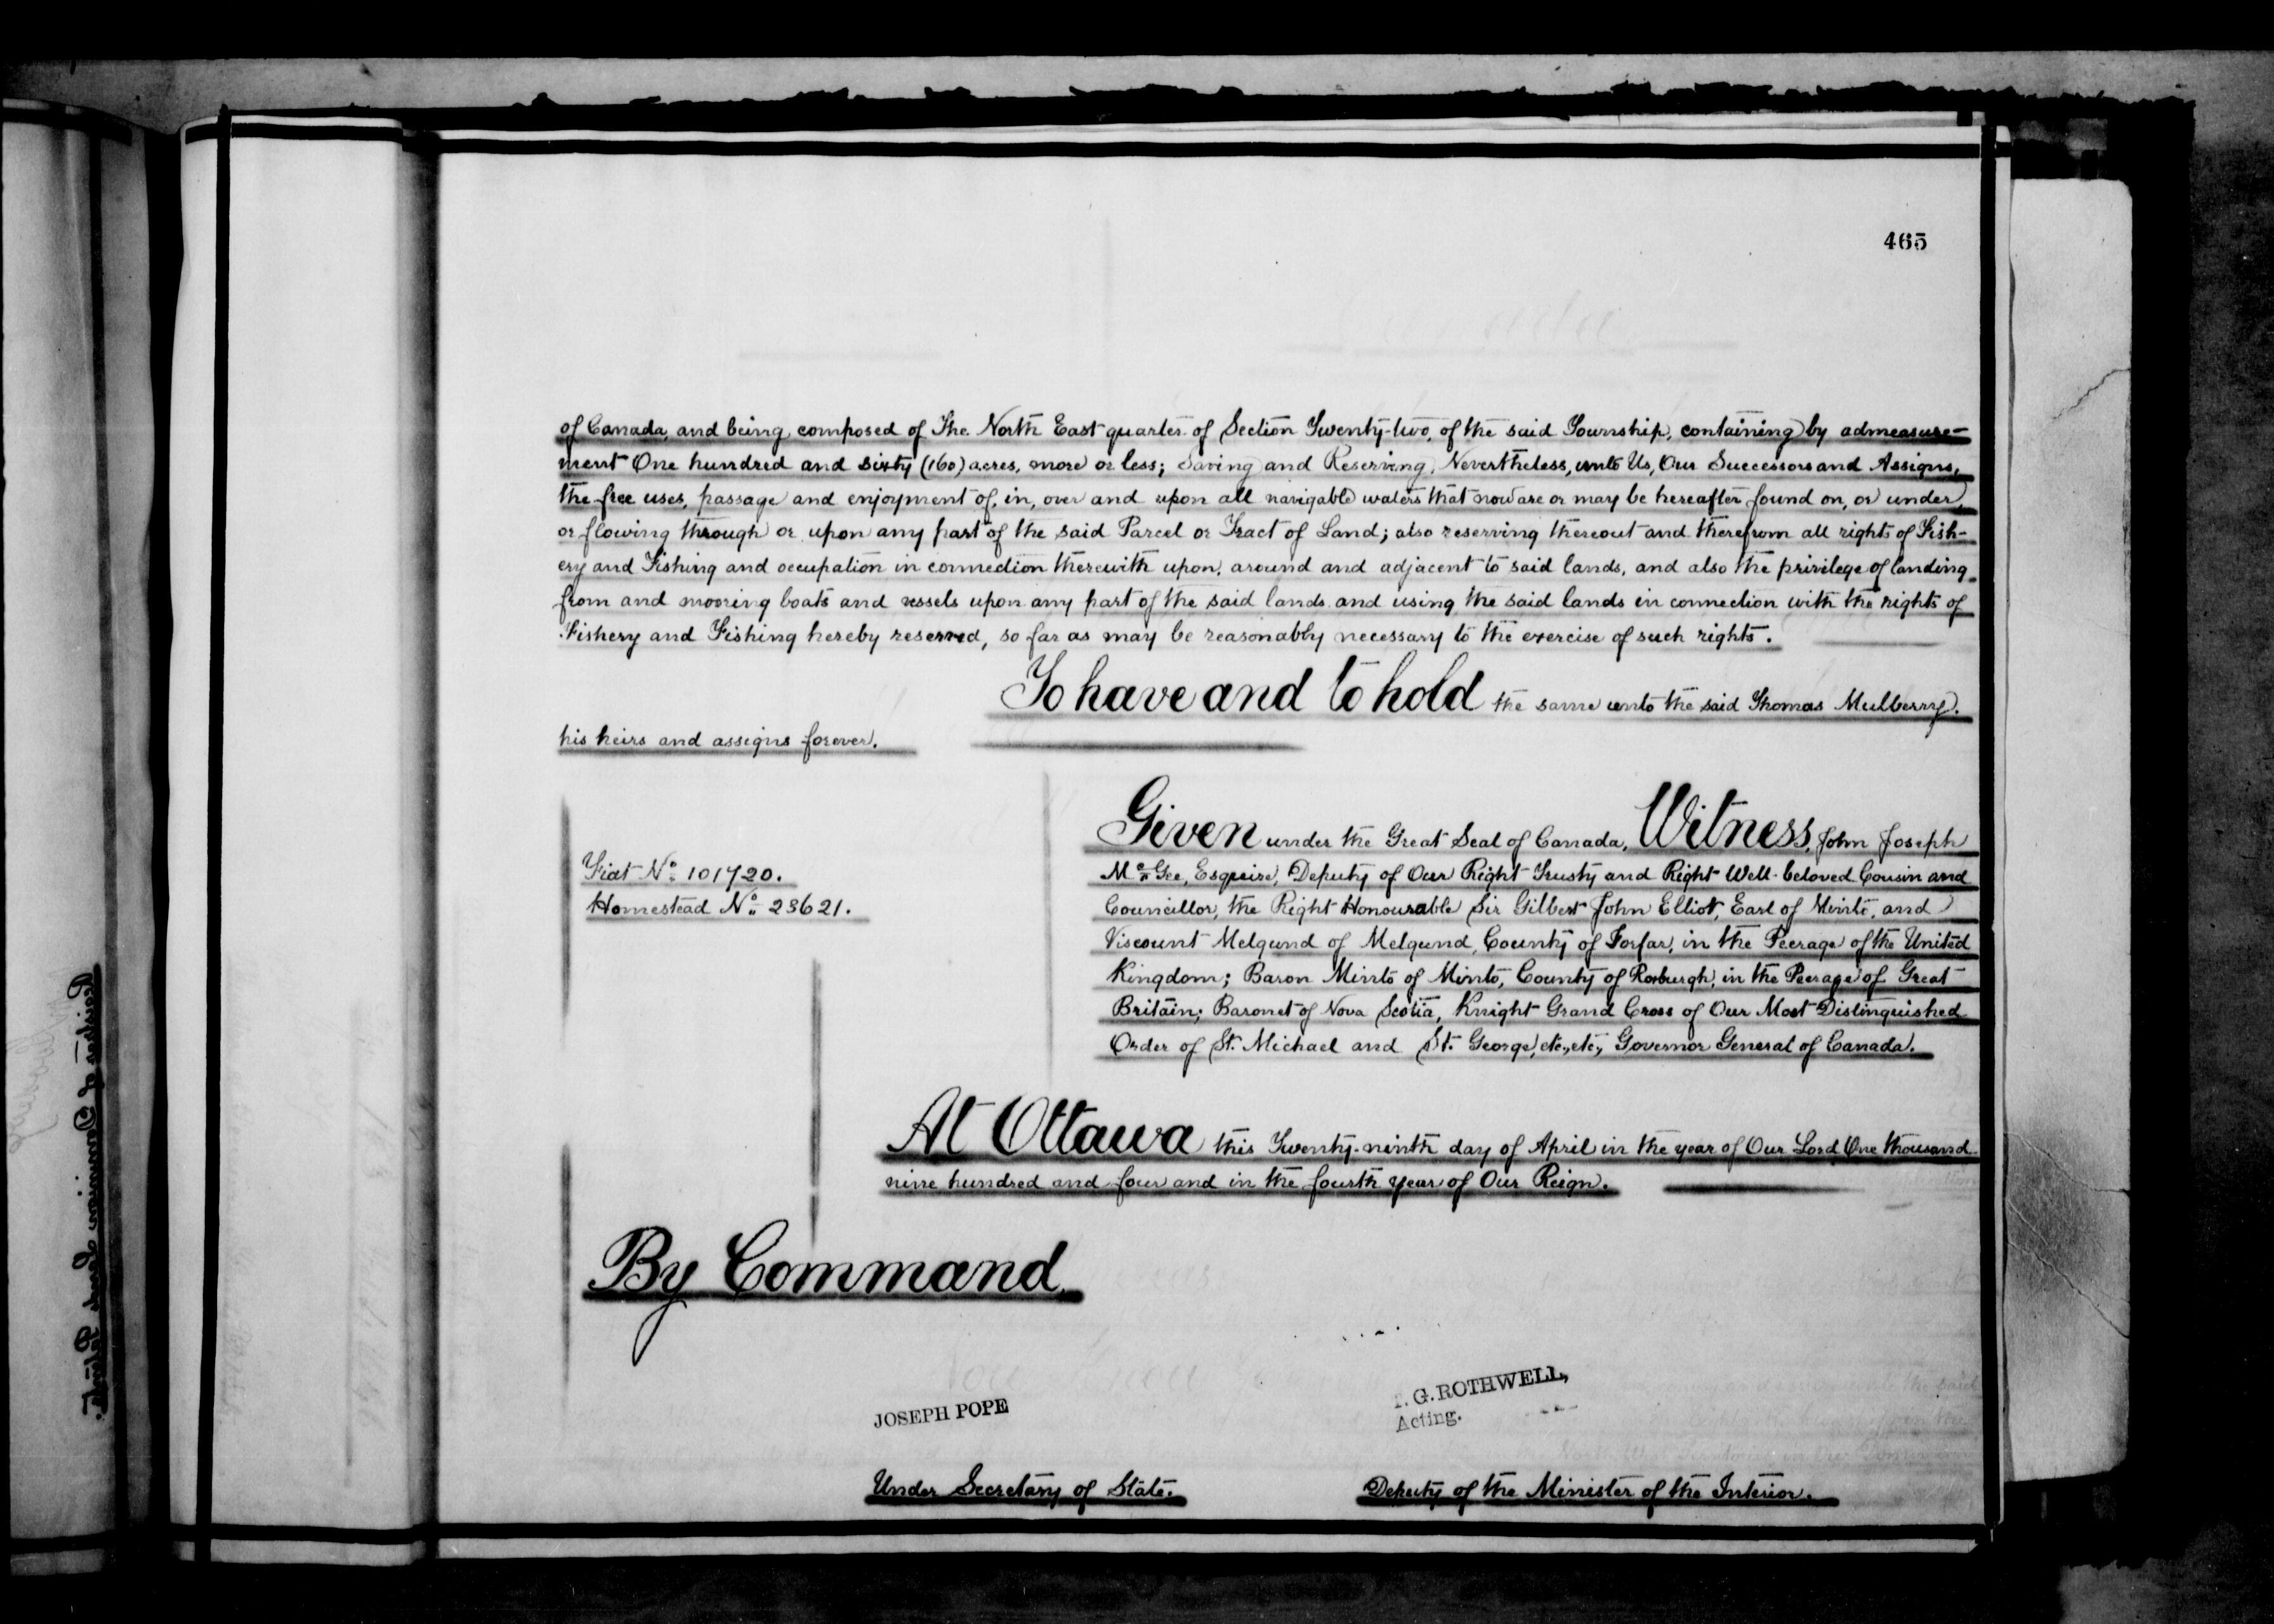 465
of Canada, and being composed of The North East quarter of Section Twenty-two, of the said Township, containing by admeasure-
ment One hundred and sixty (160) acres, more or less; Saving and Reserving, Nevertheless, unto Us, Our Successors and Assigns,
the free uses, passage and enjoyment of, in, over and upon all navigable waters that now are or may be hereafter found on, or under,
or flowing through or upon any part of the said Parcel or Tract of Land; also reserving thereout and therefrom all rights of Fish-
ery and Fishing and occupation in connection therewith upon, around and adjacent to said lands, and also the privilege of landing
from and mooring boats and vessels upon any part of the said lands and using the said lands in connection with the rights of
Fishery and Fishing hereby reserved, so far as may be reasonably necessary to the exercise of such rights.
To have and to hold the same unto the said Thomas Mulberry,
his heirs and assigns forever.
Given under the Great Seal of Canada, Witness, John Joseph
McGee, Esquire, Deputy of Our Right Trusty and Right Well-beloved Cousin and
Councillor, the Right Honourable Sir Gilbert John Elliot, Earl of Minto, and
Viscount Melgund of Melgund, County of Forfar, in the Peerage of the United
Kingdom; Baron Minto of Minto, County of Roxburgh, in the Peerage of Great
Britain; Baronet of Nova Scotia, Knight Grand Cross of Our Most Distinguished
Order of St. Michael and St. George, etc., etc., Governor General of Canada.
Fiat No. 101720.
Homestead No. 23621.
At Ottawa this Twenty-ninth day of April in the year of Our Lord One thousand
nine hundred and four and in the fourth year of Our Reign.
By Command.
JOSEPH POPE
Under Secretary of State.
G. ROTHWELL,
Acting.
Deputy of the Minister of the Interior.
Register of Dominion Lands Patents.